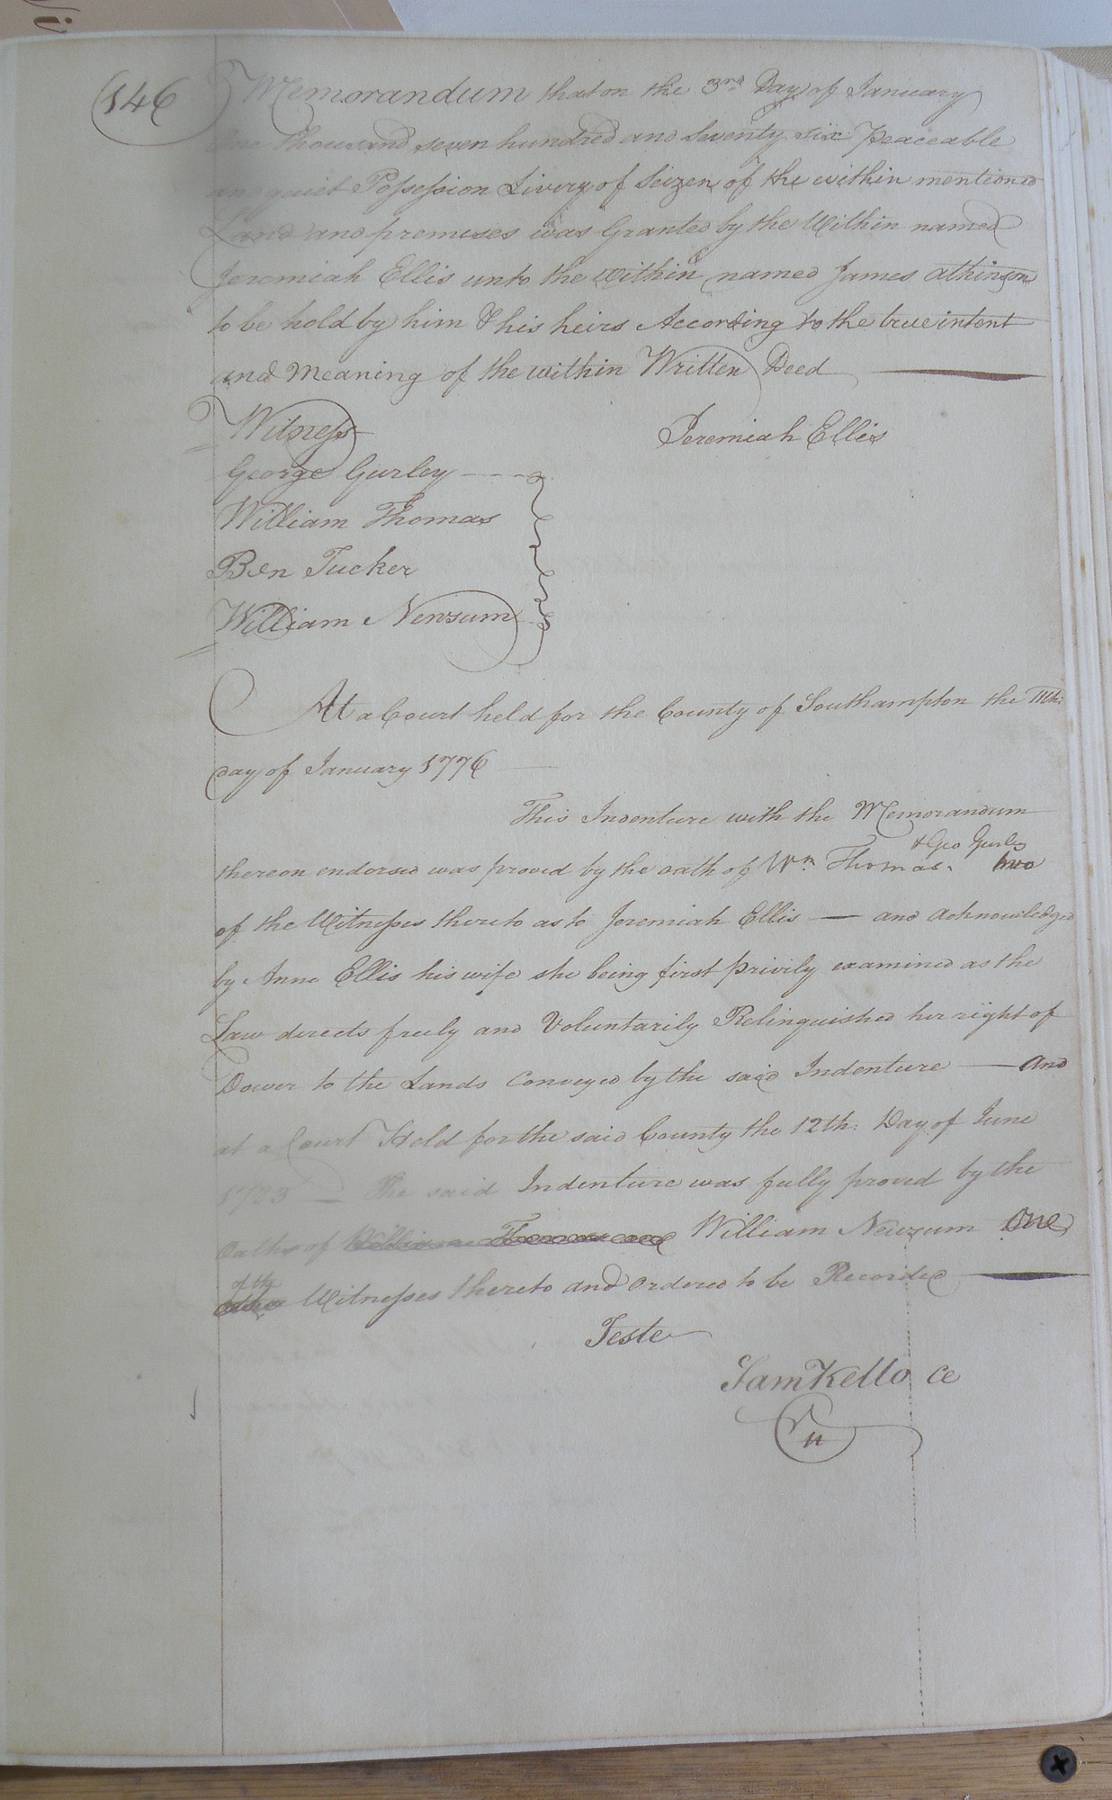 146
Memorandum that on the 3rd Day of January
One Thousand seven hundred and Seventy six Peaceable
and quiet Possession Livery of Seizen of the within mentioned
Land and premeses was Granted by the Within named
Jeremiah Ellis unto the within named James Atkinson
to be hold by him & his heirs According to the true intent
and Meaning of the within Written Deed
Witness
Jeremiah Ellis
George Gurley
William Thomas
Ben Tucker
William Newsum
At a Court held for the County of Southampton the 11th:
day of January 1776
This Indenture with the Memorandum
& Geo Gurley
thereon endorsed was proved by the oath of Wm. Thomas. two
of the Witnesses thereto as to Jeremiah Ellis — and acknowledged
by Anne Ellis his wife she being first privily examined as the
Law directs freely and Voluntarily Relinquished her right of
Dower to the Lands Conveyed by the said Indenture — And
at a Court Held for the said County the 12th: Day of June
1783 — The said Indenture was fully proved by the
Oaths of William Newsum One
of the
Witnesses thereto and Ordered to be Recorded
Teste
Sam Kello Ce